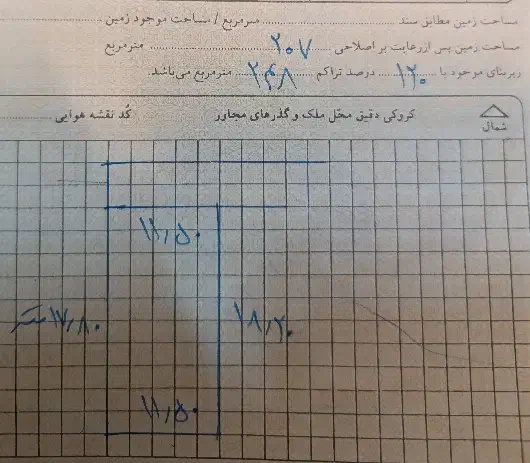 مساحت زمین مطابق سند ........ مترمربع / مساحت موجود زمین ........
مساحت زمین پس از رعایت بر اصلاحی ۲۰۷ مترمربع
زیربنای موجود با ۱۲۰ درصد تراکم ۲۴۸ مترمربع می‌باشد.
کروکی دقیق محل ملک و گذرهای مجاور
کد نقشه هوایی ........
شمال
۱۱٫۵۰
۱۷٫۸۰ متر
۱۸٫۲۰
۱۱٫۵۰